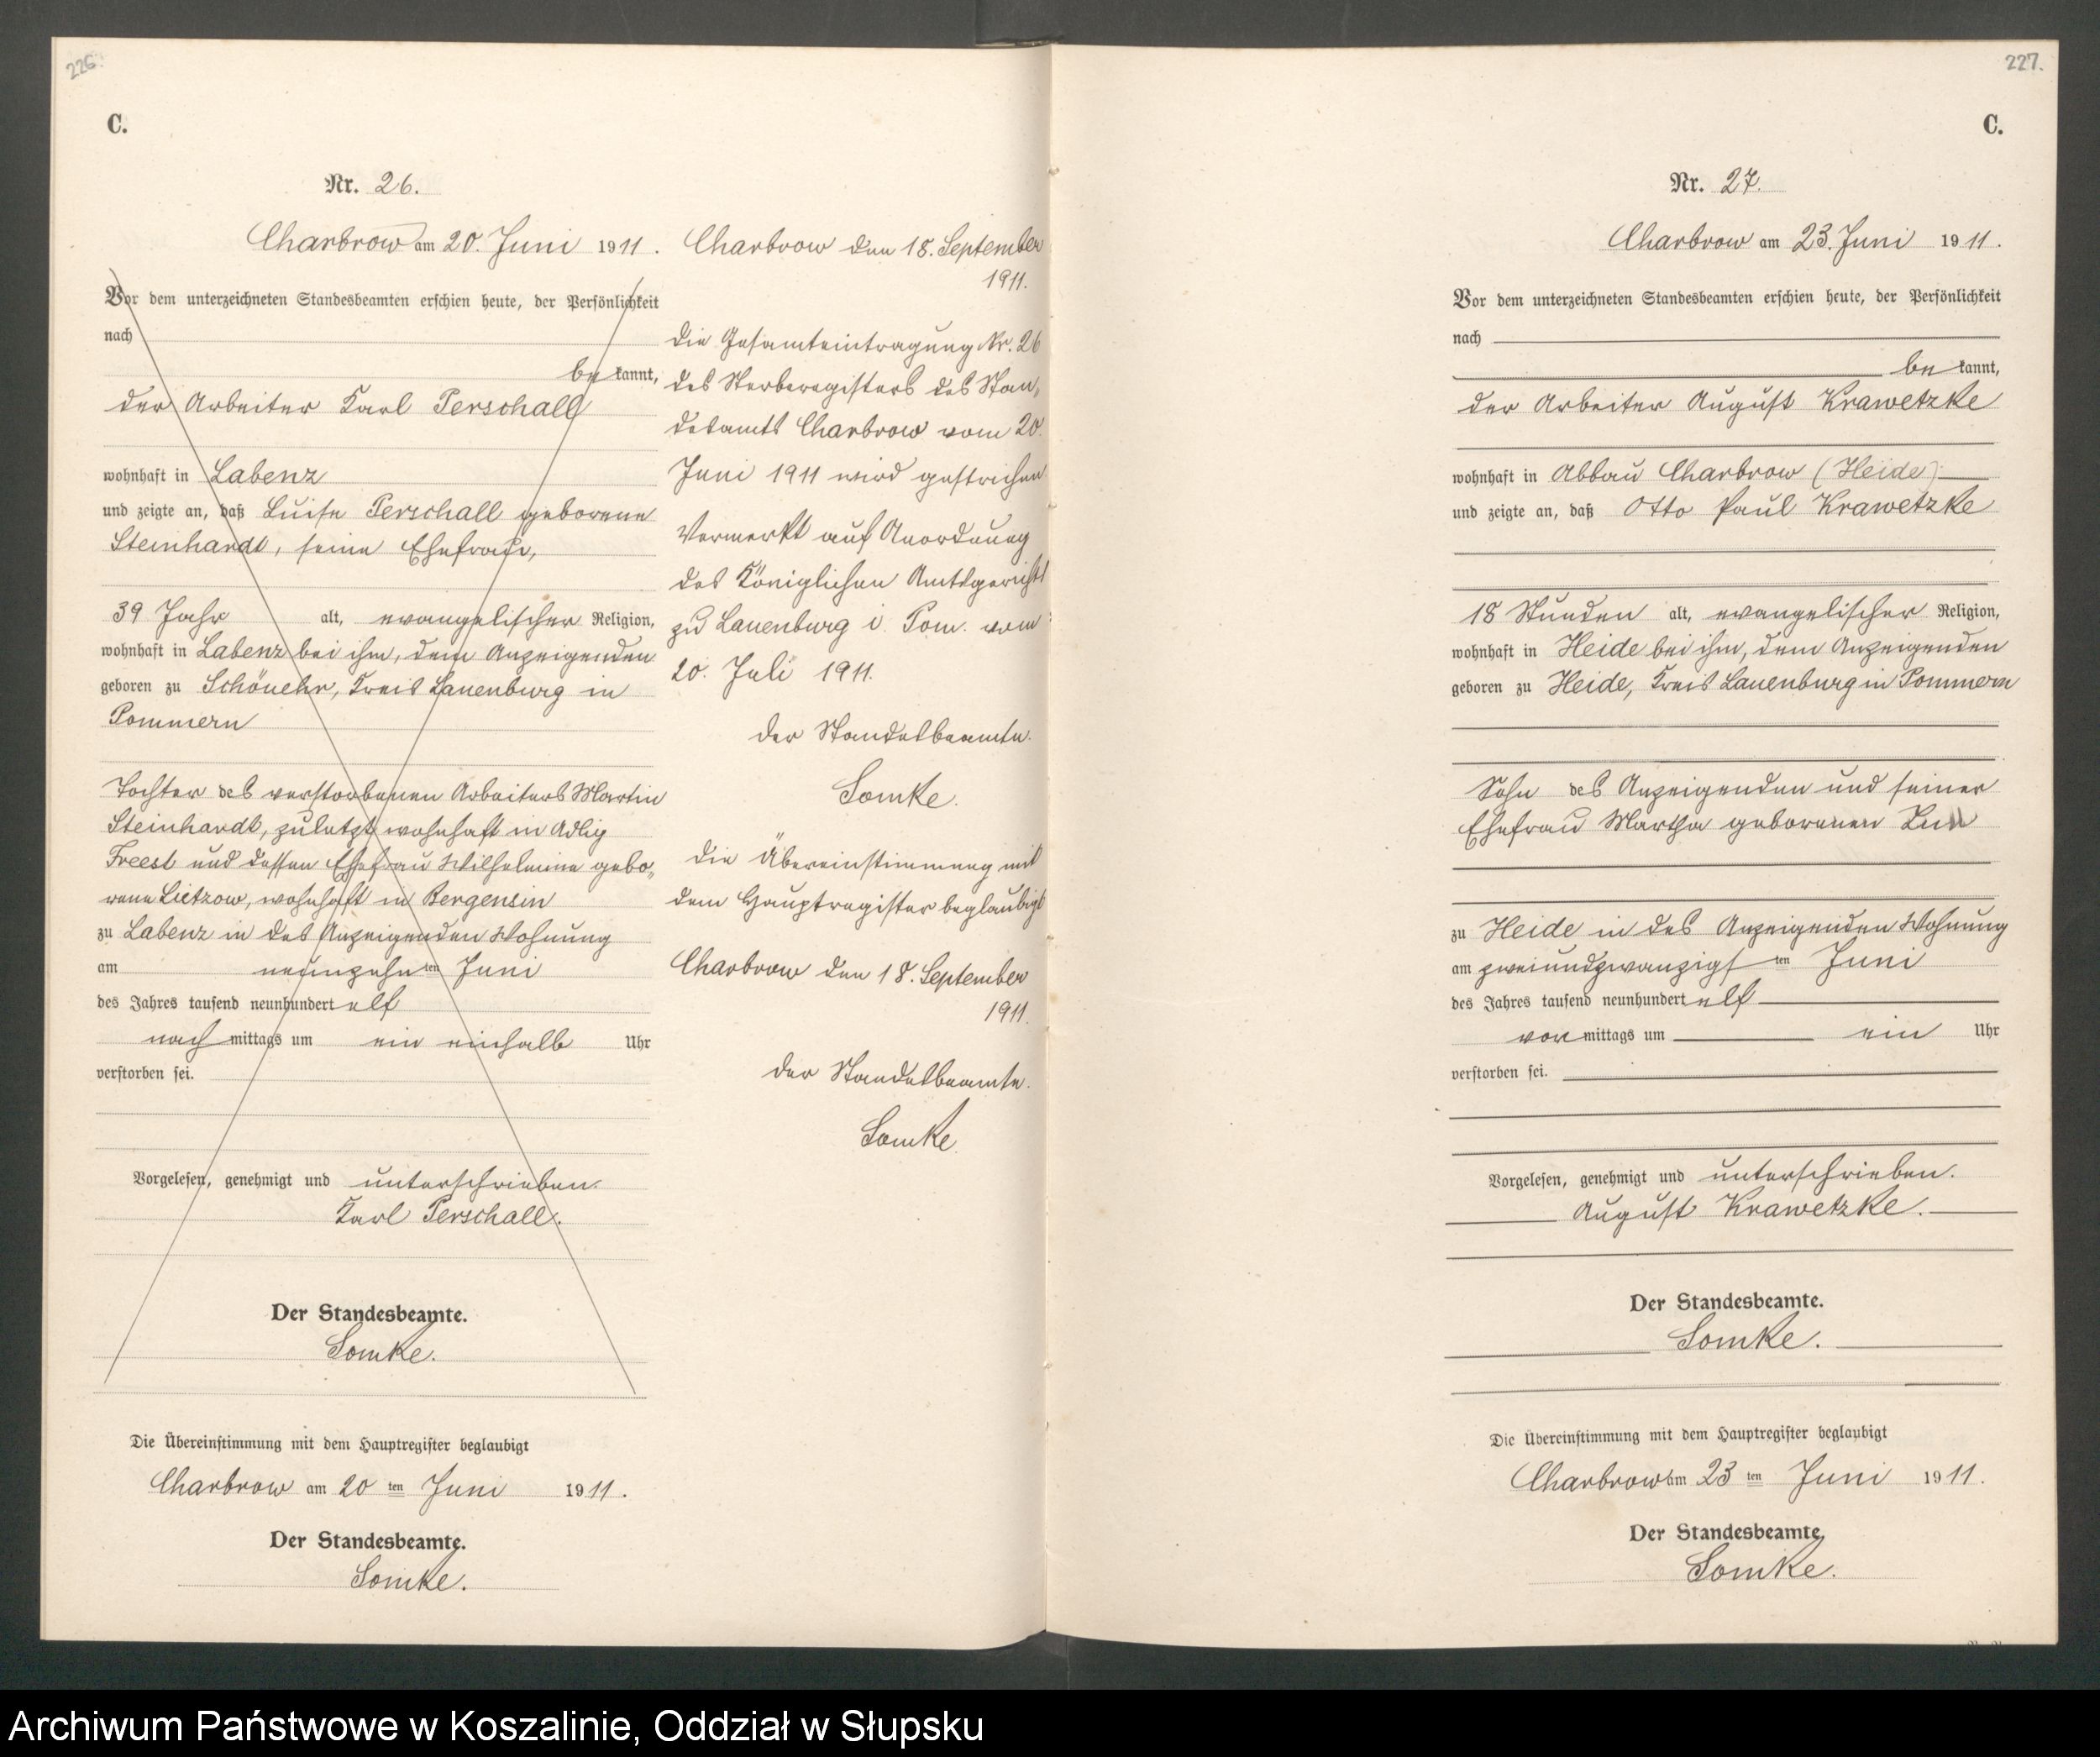 226.
C.
Nr. 26.
Charbrow am 20. Juni 1911.
Vor dem unterzeichneten Standesbeamten erschien heute, der Persönlichkeit
nach
be kannt,
der Arbeiter Karl Perschall
wohnhaft in Labenz
und zeigte an, daß Luise Perschall geborene
Steinhardt, seine Ehefrau,
39 Jahr alt, evangelischer Religion,
wohnhaft in Labenz bei ihm, dem Anzeigenden
geboren zu Schönehr, Kreis Lauenburg in
Pommern
Tochter des verstorbenen Arbeiters Martin
Steinhardt, zuletzt wohnhaft in Adlig
Freest und dessen Ehefrau Wilhelmine gebo„
rene Lietzow, wohnhaft in Bergensin
zu Labenz in des Anzeigenden Wohnung
am neunzehn ten Juni
des Jahres tausend neunhundert elf
nach mittags um ein einhalb Uhr
verstorben sei.
Vorgelesen, genehmigt und unterschrieben.
Karl Perschall.
Der Standesbeamte.
Somke.
Die Übereinstimmung mit dem Hauptregister beglaubigt
Charbrow am 20 ten Juni 1911.
Der Standesbeamte.
Somke.
Charbrow den 18. September
1911.
Die Gesamteintragung Nr. 26
des Sterberegisters des Stan„
desamts Charbrow vom 20.
Juni 1911 wird gestrichen
Vermerkt auf Anordnung
des Königlichen Amtsgerichts
zu Lauenburg i. Pom. vom
20. Juli 1911.
Der Standesbeamte.
Somke.
Die Übereinstimmung mit
dem Hauptregister beglaubigt
Charbrow den 18. September
1911.
Der Standesbeamte.
Somke.
227.
C.
Nr. 27.
Charbrow am 23. Juni 1911.
Vor dem unterzeichneten Standesbeamten erschien heute, der Persönlichkeit
nach
be kannt,
der Arbeiter August Krawetzke
wohnhaft in Abbau Charbrow (Heide)
und zeigte an, daß Otto Paul Krawetzke
18 Stunden alt, evangelischer Religion,
wohnhaft in Heide bei ihm, dem Anzeigenden
geboren zu Heide, Kreis Lauenburg in Pommern
Sohn des Anzeigenden und seiner
Ehefrau Martha geborenen
zu Heide in des Anzeigenden Wohnung
am zweiundzwanzigs ten Juni
des Jahres tausend neunhundert elf
vor mittags um ein Uhr
verstorben sei.
Vorgelesen, genehmigt und unterschrieben.
August Krawetzke.
Der Standesbeamte.
Somke.
Die Übereinstimmung mit dem Hauptregister beglaubigt
Charbrow am 23 ten Juni 1911.
Der Standesbeamte.
Somke.
Archiwum Państwowe w Koszalinie, Oddział w Słupsku